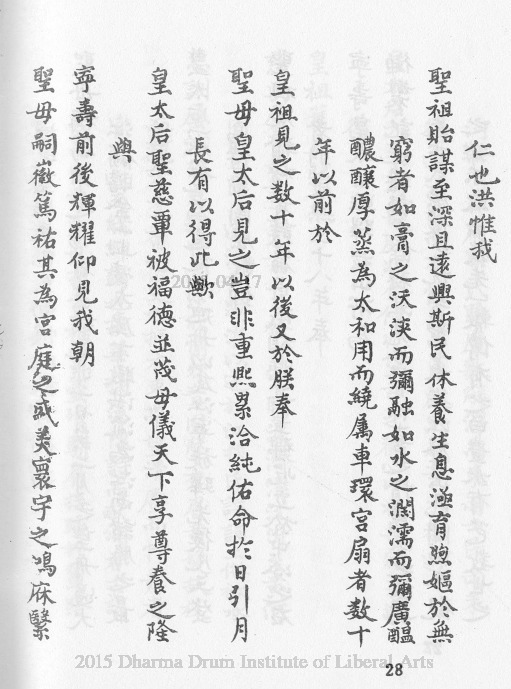 仁也洪惟我
聖祖貽謀至深且遠興斯民休養生息涵育煦嫗於無
窮者如膏之沃浹而彌融如水之潤濡而彌廣醞
醲釀厚蒸為太和用而繞属車環宮扇者数十
年以前於
皇祖見之数十年以後又於朕奉
聖母皇太后見之豈非重熙累洽純佑命扵日引月
長有以得此歟
皇太后聖慈覃被福德並茂母儀天下享尊養之隆
與
寧壽前後輝耀仰見我朝
聖母嗣徽篤祜其為宮庭之盛美寰宇之鴻庥繄
28
2015 Dharma Drum Institute of Liberal Arts